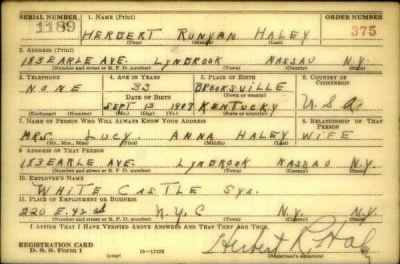 SERIAL NUMBER 1. NAME (Print) ORDER NUMBER
1189 HERBERT RUNYAN HALEY 375
(First) (Middle) (Last)
2. ADDRESS (Print)
153 EARLE AVE. LYNBROOK NASSAU N.Y.
(Number and street or R. F. D. number) (Town) (County) (State)
3. TELEPHONE 4. AGE IN YEARS 5. PLACE OF BIRTH 6. COUNTRY OF CITIZENSHIP
NONE 33 BROOKSVILLE
DATE OF BIRTH (Town or county) U.S.A.
SEPT 13 1907 KENTUCKY
(Exchange) (Number) (Mo.) (Day) (Yr.) (State or country)
7. NAME OF PERSON WHO WILL ALWAYS KNOW YOUR ADDRESS 8. RELATIONSHIP OF THAT PERSON
MRS. LUCY ANNA HALEY WIFE
(Mr., Mrs., Miss) (First) (Middle) (Last)
9. ADDRESS OF THAT PERSON
153 EARLE AVE. LYNBROOK NASSAU N.Y.
(Number and street or R. F. D. number) (Town) (County) (State)
10. EMPLOYER'S NAME
WHITE CASTLE SYS.
11. PLACE OF EMPLOYMENT OR BUSINESS
220 E. 42 N.Y.C N.Y. N.Y.
(Number and street or R. F. D. number) (Town) (County) (State)
I AFFIRM THAT I HAVE VERIFIED ABOVE ANSWERS AND THAT THEY ARE TRUE.
REGISTRATION CARD
D. S. S. Form 1 (over) Herbert R. Haley